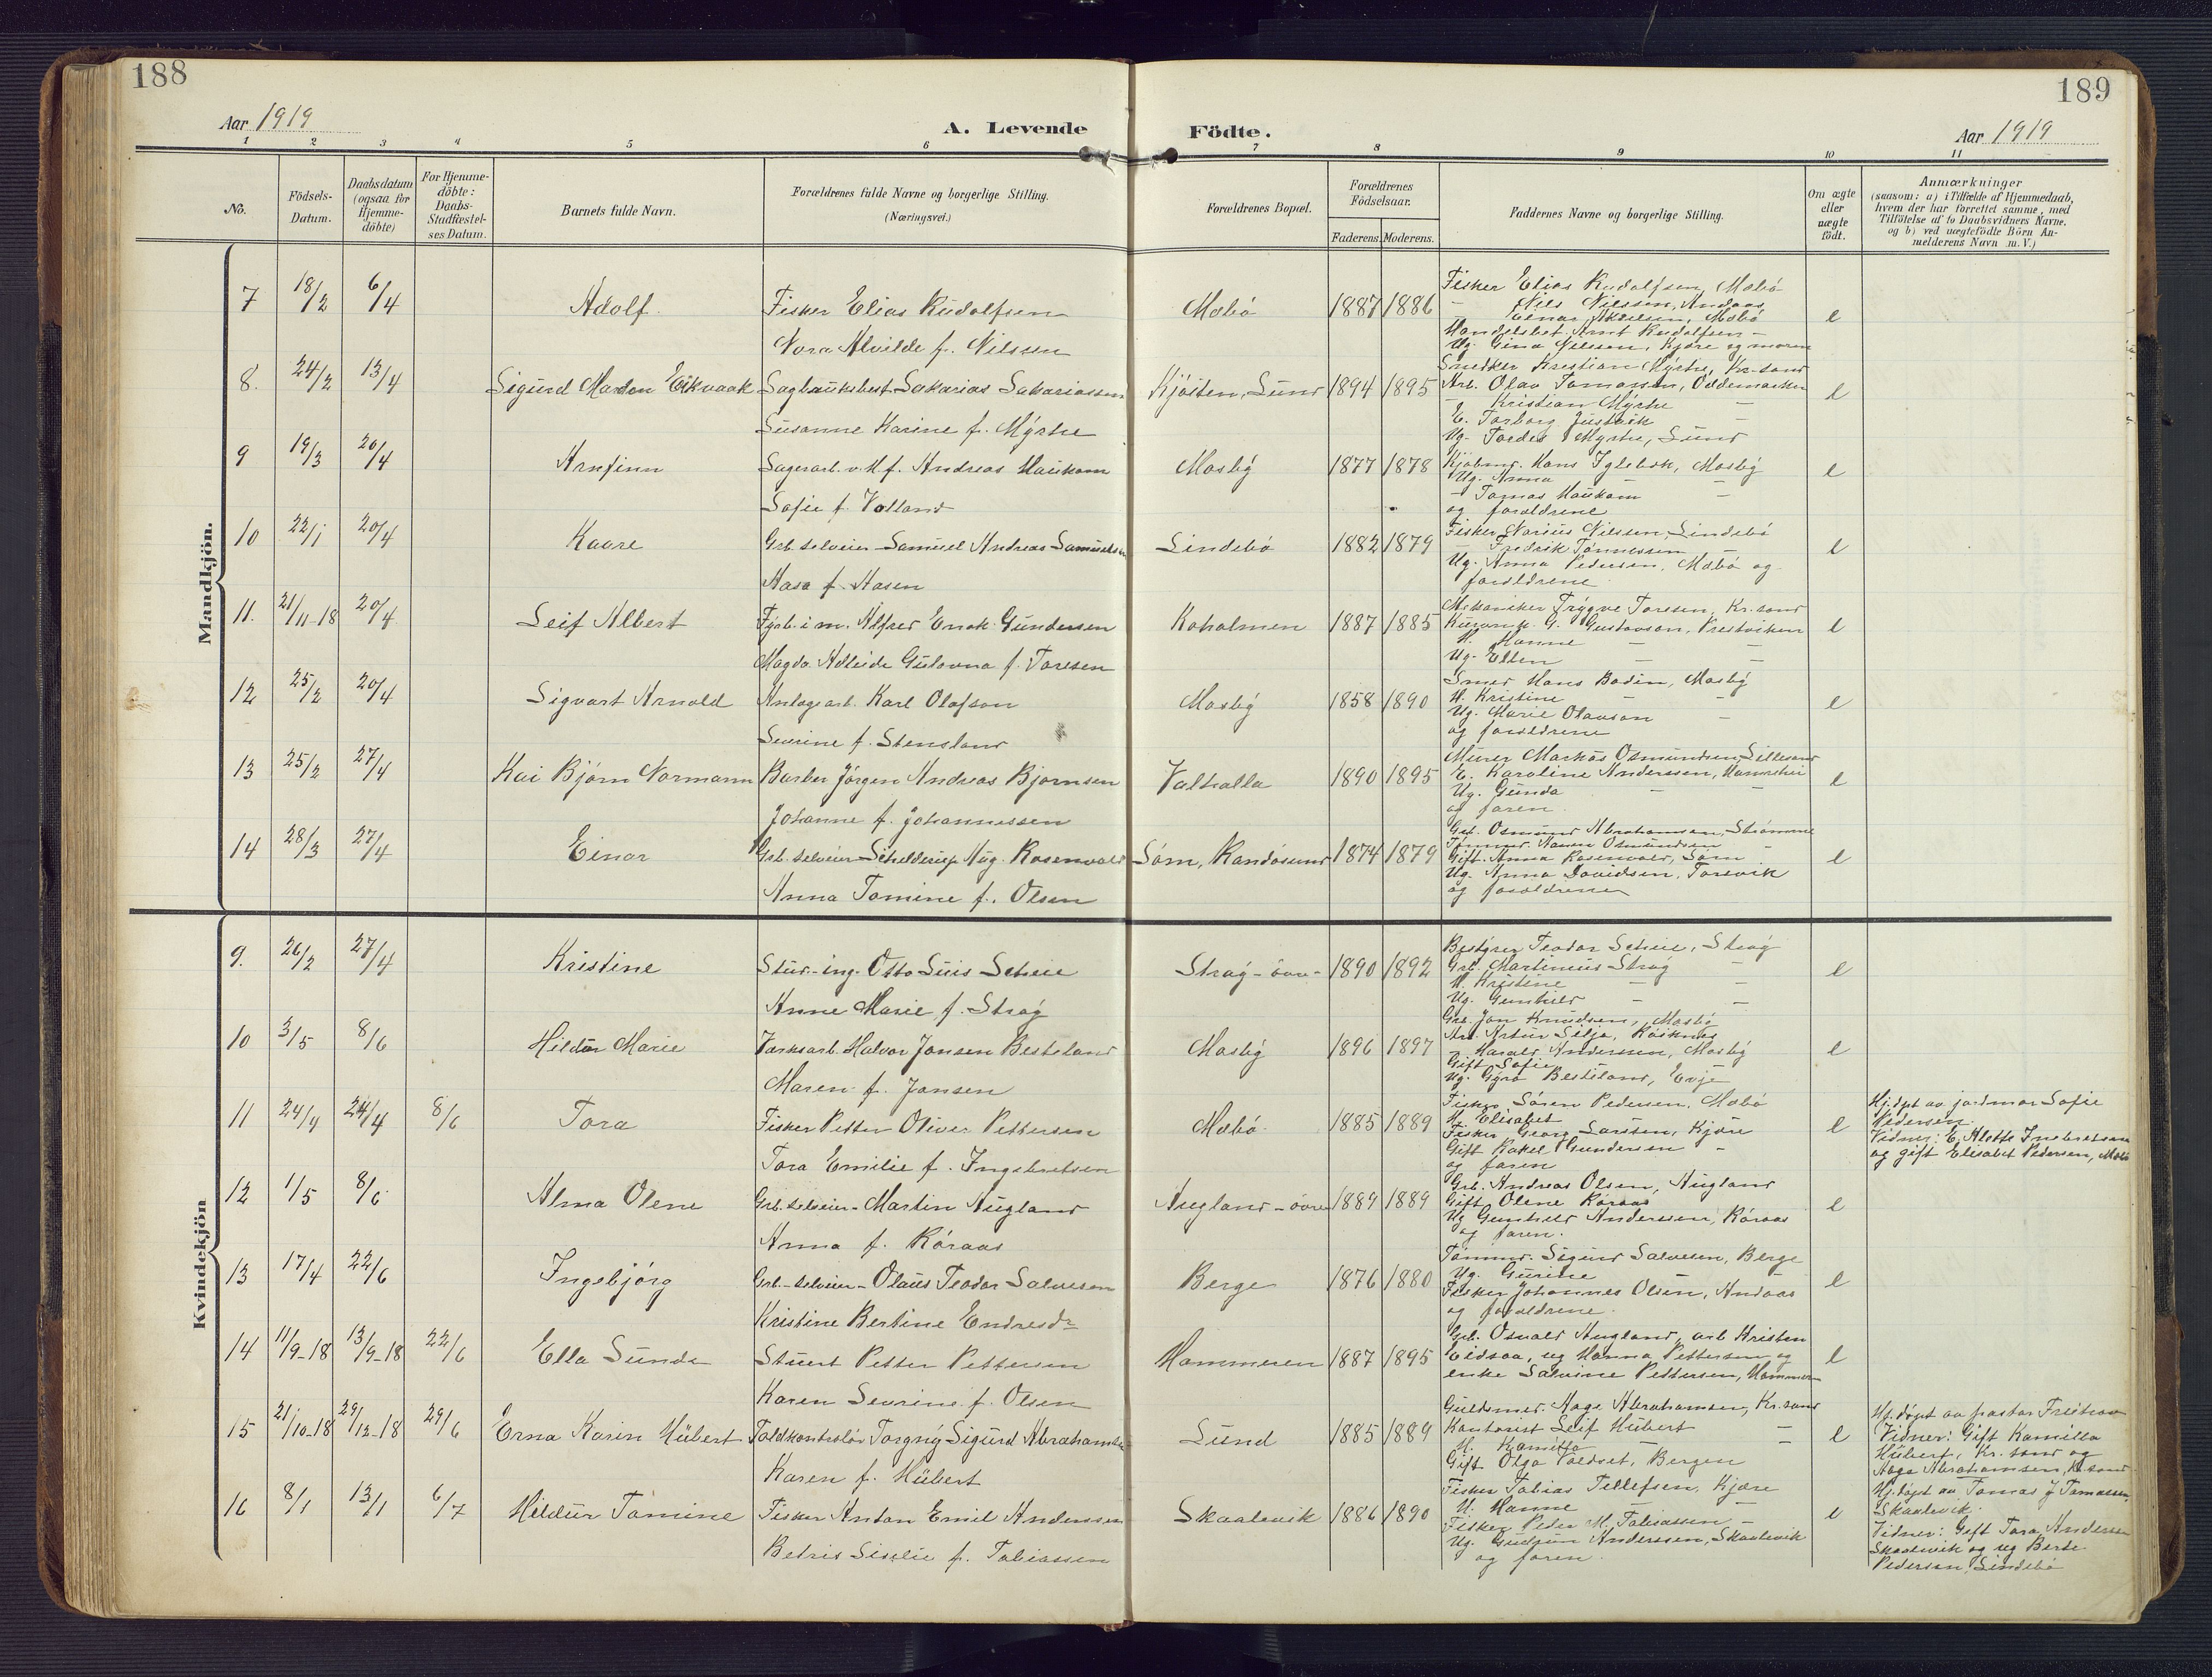 188
189
Aar 1919
A. Levende
Födte.
Aar 1919
1 2 3 4 5 6 7 8 9 10 11
No.
Födsels-
Datum.
Daabsdatum
(ogsaa for
Hjemme-
döbte)
For Hjemme-
döbte:
Daabs-
Stadfæstel-
ses Datum.
Barnets fulde Navn.
Forældrenes fulde Navne og borgerlige Stilling.
(Næringsvei.)
Forældrenes Bopæl.
Forældrenes
Födselsaar.
Faderens. Moderens.
Faddernes Navne og borgerlige Stilling.
Om ægte
eller
uægte
födt.
Anmærkninger
(saasom: a) i Tilfælde af Hjemmedaab,
hvem der har forrettet samme, med
Tilföielse af to Daabsvidners Navne,
og b) ved uægtefödte Börn An-
melderens Navn m. V.)
Mandkjön.
7 18/2 6/4 Adolf. Fisker Elias Rudolfsen
Nora Alvilde f. Nilssen
Mæbö 1887 1886
Fisker Elias Rudolfsen, Mæbö
- Nils Nilssen, Andaas
Handelsbet. Arnt Rudolfsen -
Ug. Gina Nilssen, Kjære og moren
e
8. 24/2 13/4 Sigurd Eikvaak Sakarias Sakariassen
Susanne Karine f. Myrhe
Lund 1894 1895
Snedker Kristian Myrhe, Kr.sand
Arb. Olav Tomassen, Oddemarken
- Kristian Myrhe -
E. Torborg
Ug. Myrhe, Lund
e
9 19/3 20/4 Arnfinn Sagerarb. v. Hf. Andreas Haukom
Sofie f. Volland
Mosby 1877 1878
Kjöbm. Hans Iglebæk, Mosby
Ug. Anna - -
- Tomas Haukom -
og forældrene
e
10 22/1 20/4 Kaare Grb. selveier - Samuel Andreas Samuelsen
Aasa f. Aasen
Lindebö 1882 1879
Fisker Norius Nilssen, Lindebö
- Fredrik Tönnessen -
Ug. Anna Pedersen, Mæbö og
forældrene.
e
11. 21/11-18 20/4 Leif Albert Fyrb. i m. Alfred Enok Gundersen
Magda Adleide Gulovna f. Toresen
Kohalmen 1887 1885
Mekaniker Trygve Toresen, Kr.sand
G. Gustavson, Prestviken
H. Hanne - -
Ug. Ellen - -
e
12 25/2 20/4 Sigvart Arnold Anlægsarb. Karl Olafson
Severine f. Stensland
Mosby 1858 1890
Smed Hans Bodin, Mosby
H. Kristine - -
Ug. Marie Olavson -
og forældrene
e
13 25/2 27/4 Kai Björn Normann Barber Jörgen Andreas Bjornsen
Johanne f. Johannessen
Valhalla 1890 1895
Murer Markus Osmundsen, Lillesand
E. Karoline Anderssen,
Ug. Gunda - -
og faren.
e
14 28/3 27/4 Einar Grb. selveier Schelderup Aug. Rosenvold
Anna Tomine f. Olsen
Söm, Randösund 1874 1879
Grb. Osmund Abrahamsen, Strömme
Tömmer. Osmundsen -
Gift. Anna Rosenvold, Söm
Ug. Anna Davidsen, Torsvik
og forældrene
e
Kvindekjön
9. 26/2 27/4 Kristine Stud.-ing. Otto Scheie
Anne Marie f. Stray
Stray - övre - 1890 1892
Bestyrer Teodor Scheie, Stray
Grb. Martinius Stray -
H. Kristine - -
Ug. Gunhild - -
e
10 3/5 8/6 Hildur Marie Værksarb. Halvor Jansen Besteland
Maren f. Jansen
Mosby 1896 1897
Grb. Jon Knudsen, Mosby
Arb. Artur Silje,
- Harald Anderssen, Mosby
Gift Sofie
Ug. Gyro Besteland, Evje
e
11 24/4 24/4 8/6 Tora Fisker Petter Oliver Pettersen
Tora Emilie f. Ingebretsen
Mæbö 1885 1889
Fisker Sören Pedersen, Mæbö
H. Elisabet -
Fisker Georg Larssen, Kjære
Gift Rakel Gundersen -
og faren
e
Hj.döpt av jordmor Sofie
Pedersen.
Vidner: E. Alette Inebretsen
og gift Elisabet Pedersen, Mæbö
12 1/5 8/6 Alma Olene Grb. selveier - Martin Augland
Anna f. Röraas
Augland - övre 1889 1889
Grb. Andreas Olsen, Augland
Gift Olene Röraas
Ug Gunhild Anderssen, Röraas
og faren.
e
13 17/4 22/6 Ingebjörg Grb. - selveier - Olaus Teodor Salvesen
Kristine Bertine Endresdr
Berge 1876 1880
Tömmer. Sigurd Salvesen, Berge
Ug. Gurine -
Fisker Johannes Olsen, Andaas
og forældrene.
e
14 11/9-18 13/9-18 22/6 Ella Sunde Stuert Petter Pettersen
Karen Severine f. Olsen
Hammeren 1887 1895
Grb. Osvald Augland, arb Kristen
Eidsaa, ug Hanna Pettersen og
enke Salvine Pettersen, Hammer-
e
15 21/10-18 29/12-18 29/6 Erna Karin Hübert Toldkontrolör Torgny Sigurd Abrahamsen
Karen f. Hübert
Lund 1885 1889
Guldsmed. Aage Abrahamsen, Kr.sand
Kontorist Leif Hübert -
H. Kamilla - -
Gift Olga Voldset, Bergen
e
Hj.döpt av pastor
Vidner: Gift Kamilla
Hübert, Kr.sand og
Aage Abrahamsen, Kr.sand
16 8/1 13/1 6/7 Hildur Tomine Fisker Anton Emil Anderssen
Betris Sisselie f. Tobiassen
Skaalevik 1886 1890
Fisker Tobias Tellefsen, Kjære
H. Hanne - -
Fisker Peder M. Tobiassen -
Ug. Gudrun Anderssen, Skaalevik
og faren.
e
Hj.döpt av Tomas J Tomassen,
Skaalevik.
Vidner: Gift Tora Anderssen
Skaalevik og ug Berte
Pedersen, Lindebö